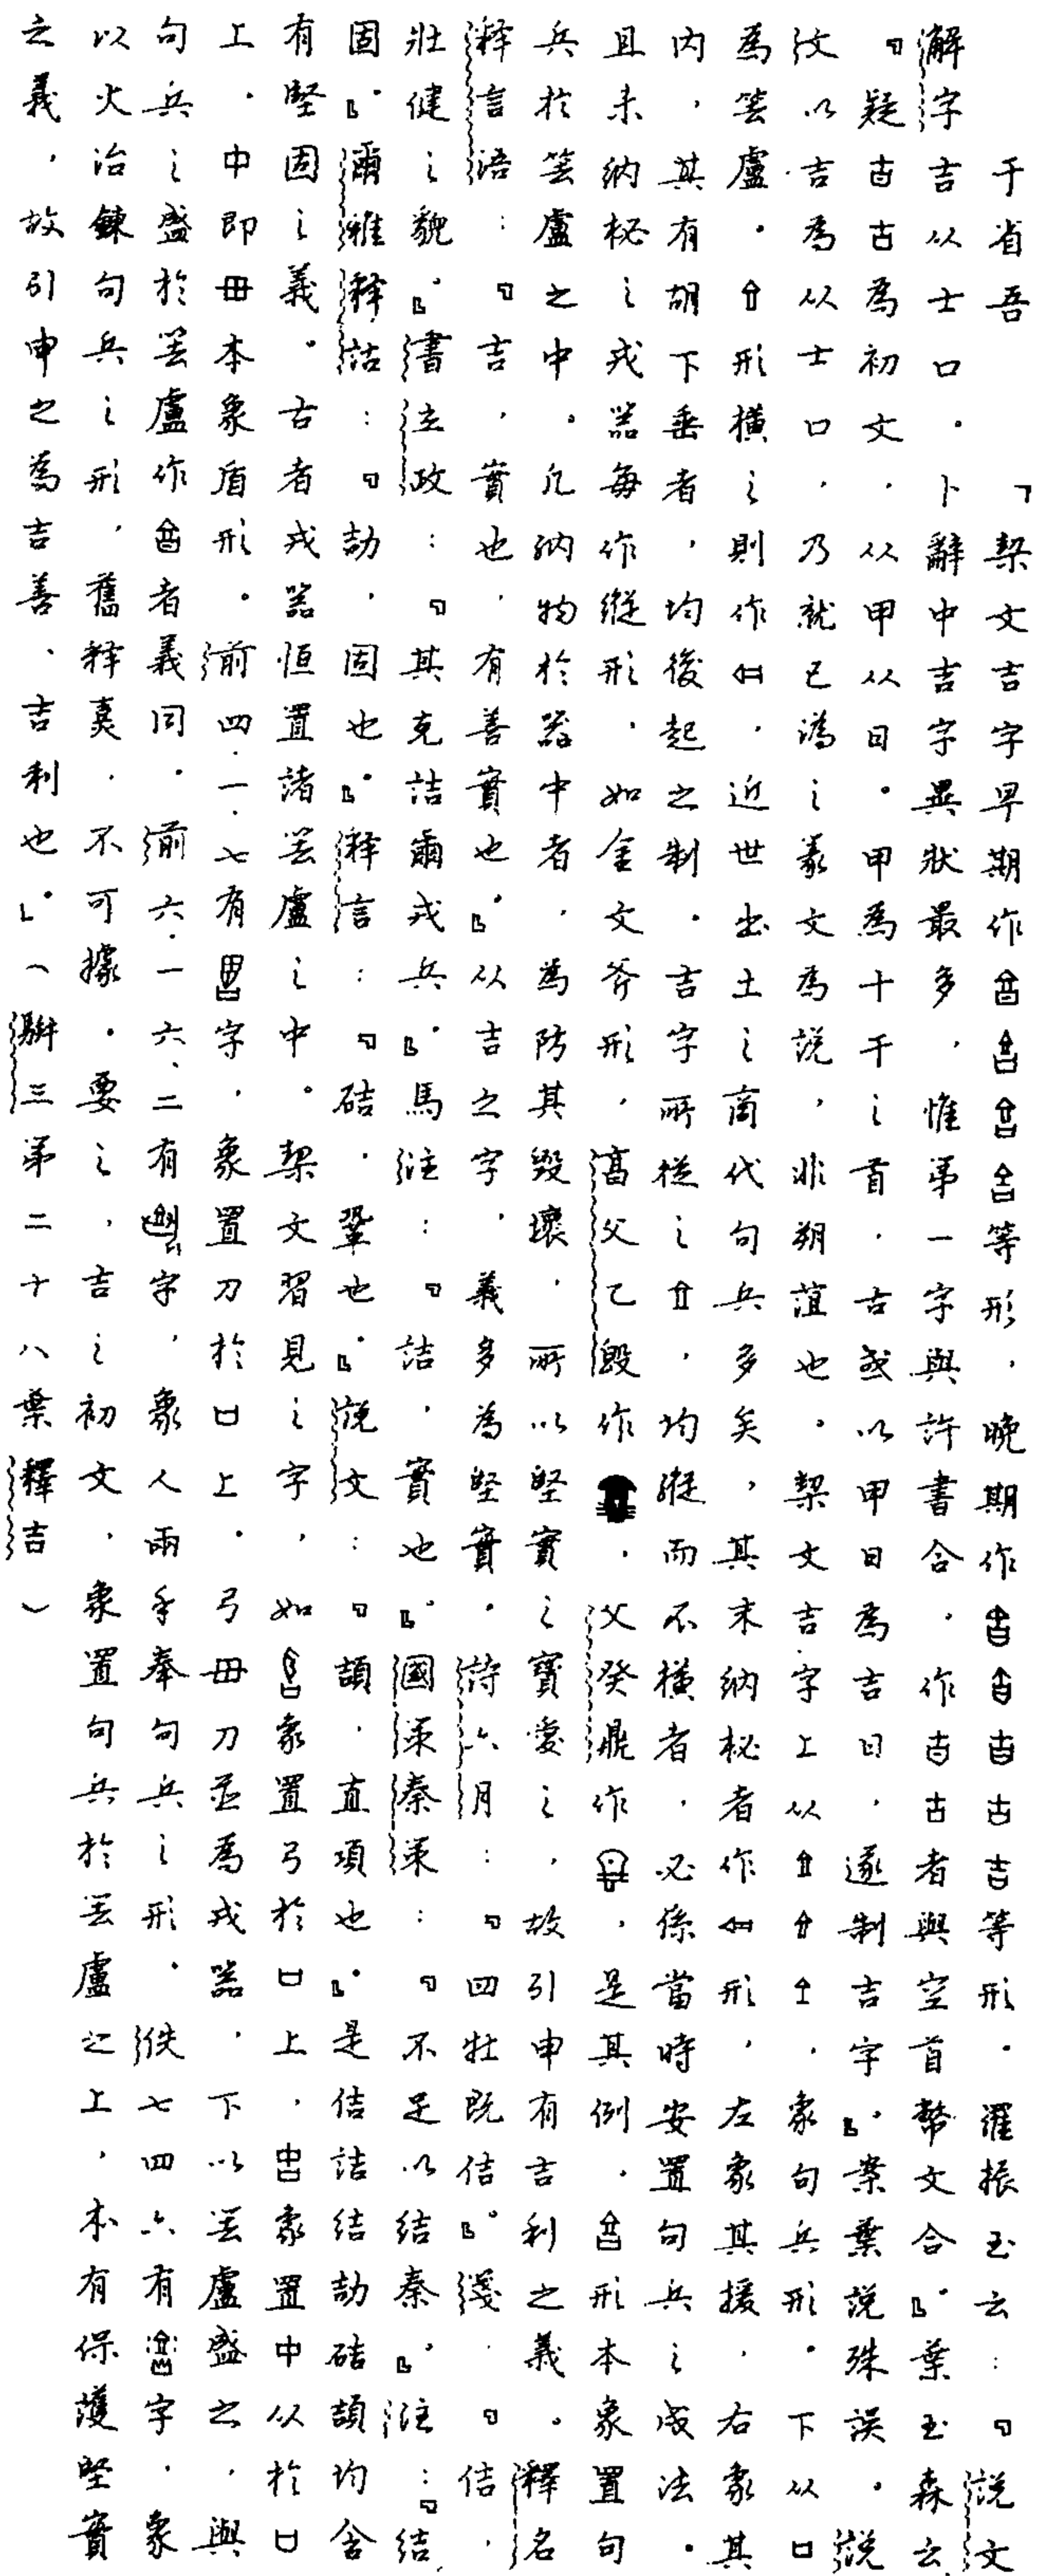 于省吾「契文吉字早期作等形，晚期作吉等形。羅振玉云：『說文
解字吉从士口。卜辭中吉字異狀最多，惟弟一字與許書合，作者與空首幣文合』。葉玉森云
『疑古為初文，从甲从日。甲為十干之首，古或以甲日為吉日，遂制吉字』。案葉說殊誤。說
文以吉為从士口，乃就已譌之篆文為說，非朔誼也。契文吉字上从，象句兵形。下从口
為笑盧。形橫之則作，近世出土之商代句兵多矣，其末納柲者作形，左象其援，右象其
內，其有胡下垂者，均後起之制。吉字所從之，均縱而不橫者，必係當時安置句兵之成法。
且未納柲之戎器每作縱形，如金文斧形，高父乙毁作，父癸鼎作，是其例。形本象置句
兵於笑盧之中。凡納物於器中者，為防其毀壞，所以堅實之寶愛之，故引申有吉利之義。釋名
釋言語：『吉，實也，有善實也』。从吉之字，義多為堅實。詩六月：『四牡既佶』。箋，『佶，
壯健之貌』。書立政：『其克詰爾戎兵』。馬注：『詰，實也』。國策秦策：『不足以結秦』。注：『結
固』。爾雅釋詁：『劼，固也』。釋言：『硈，鞏也』。說文：『頡，直項也』。是佶詰結劼硈頡均含
有堅固之義。古者戎器恒置諸笑盧之中。契文習見之字，如象置弓於口上，象置中从於口
上。中即毌本象盾形。前四·一·七有字，象置刀於口上。弓毌刀並為戎器，下以笑盧盛之，與
句兵之盛於笑盧作者義同。前六·一六·二有字，象人兩手奉句兵之形。佚七四六有字，象
以火冶鍊句兵之形，舊釋，不可據。要之，吉之初文，象置句兵於笑盧之上，本有保護堅實
之義，故引申之為吉善、吉利也」。（駢三第二十八葉釋吉）